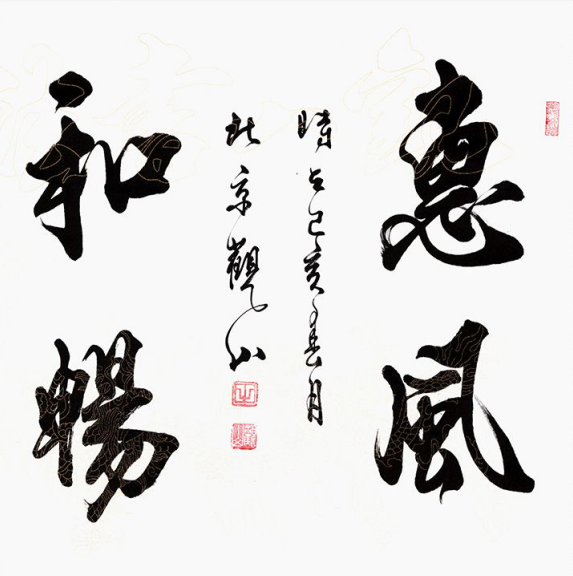 惠風
時在己亥春月
京觀
和暢